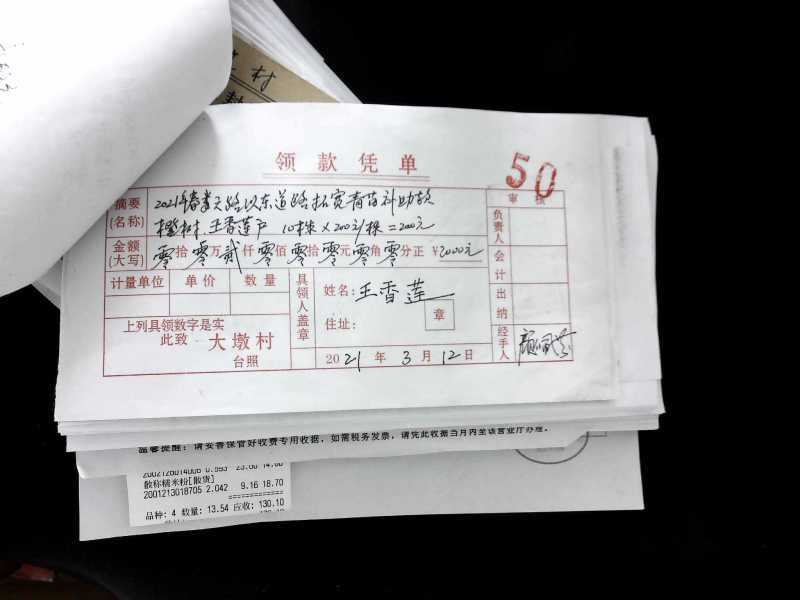 村
领款凭单
50
摘要
(名称)
2021年春娄天路以东道路拓宽青苗补助款
橙树.王香莲户 10株×200元/株=2000元
审 核
金额
(大写)
零拾零万贰仟零佰零拾零元零角零分正 ¥2000元
负责人
计量单位 单价 数量
具领人盖章
姓名:王香莲
会计
住址:
章
出纳
上列具领数字是实
此致 大墩村
台照
2021年3月12日
经手人
温馨提醒:请妥善保管好收费专用收据,如需税务发票,请凭此收据当月内至该营业厅办理。
2002126014006 0.593 23.60 14.00
散称糯米粉[散货]
2001213018705 2.042 9.16 18.70
品种:4 数量:13.54 应收:130.10